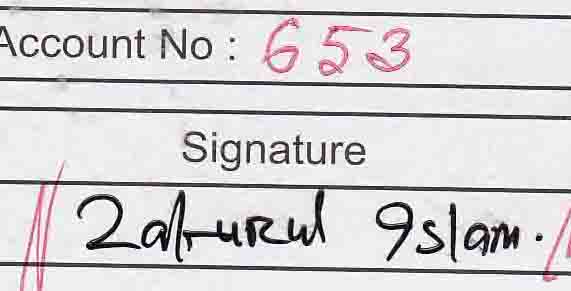 Account No : 653
Signature
Zahurul Islam.